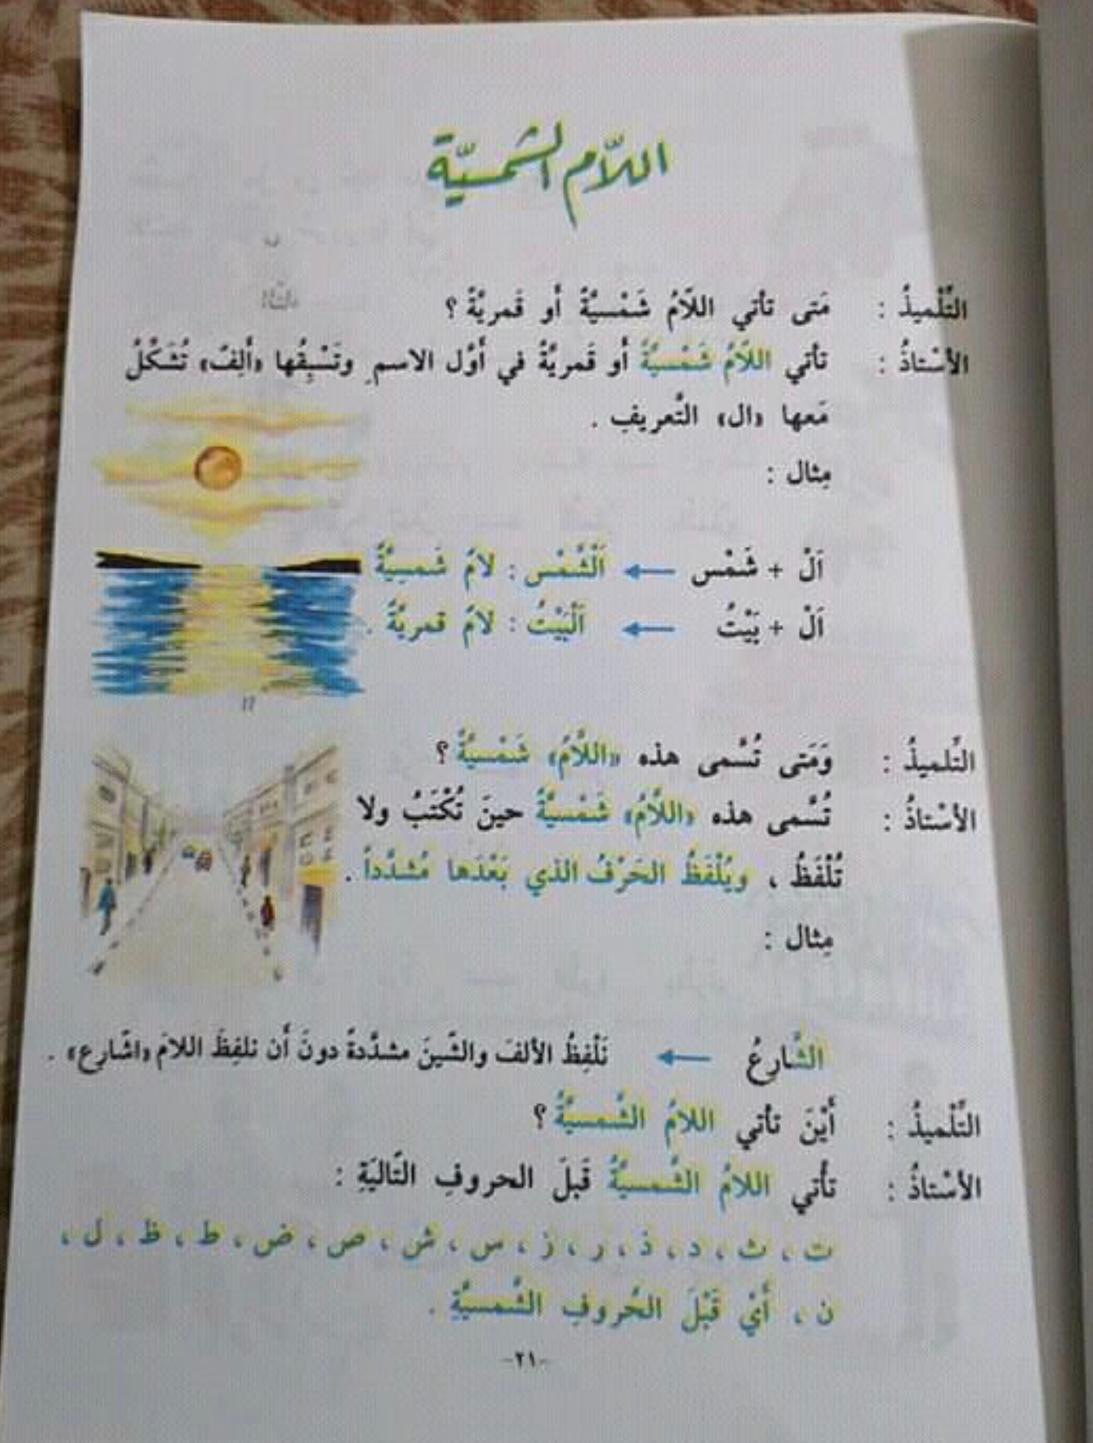 اللاّم الشمسيّة
التِّلْميذُ : مَتى تأتي اللاّمُ شَمْسيَّةٌ أو قَمريَّةٌ ؟
الأسْتاذُ : تأتي اللاّمُ شَمْسيَّةٌ أو قَمريَّةٌ في أوَّل الاسم ِ وتَسْبِقُها «ألِفٌ» تُشَكِّلُ
مَعها «ال» التَّعريفِ .
مِثال :
اَلْ + شَمْس ← اَلْشَّمْس : لامٌ شَمسِيَّةٌ
اَلْ + بَيْتُ ← اَلْبَيْتُ : لامٌ قمريَّةٌ .
التِّلميذُ : وَمَتى تُسَّمى هذه «اللّامُ» شَمْسيَّةٌ ؟
الأسْتاذُ : تُسَّمى هذه «اللّامُ» شَمْسيَّةٌ حينَ تُكْتَبُ ولا
تُلْفَظُ ، ويُلْفَظُ الحَرْفُ الذي بَعْدَها مُشدَّداً .
مِثال :
الشَّارِعُ ← نَلْفِظُ الألفَ والشّينَ مشدَّدةٌ دونَ أن نلفِظَ اللامَ «اشّارع» .
التِّلْميذُ : أَيْنَ تأتي اللامُ الشَّمسيَّةُ ؟
الأسْتاذُ : تأتي اللامُ الشَّمسيَّةُ قَبلَ الحروفِ التّاليَةِ :
ت ، ث ، د ، ذ ، ر ، ز ، س ، ش ، ص ، ض ، ط ، ظ ، ل ،
ن ، أيْ قَبْلَ الحُروفِ الشَّمسيَّةِ .
-٢١-